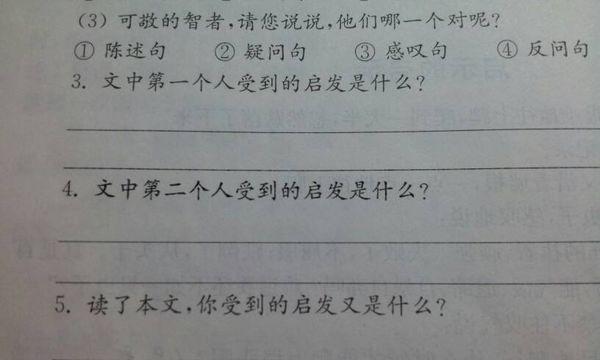 (3) 可敬的智者,请您说说,他们哪一个对呢?
① 陈述句 ② 疑问句 ③ 感叹句 ④ 反问句
3. 文中第一个人受到的启发是什么?
4. 文中第二个人受到的启发是什么?
5. 读了本文,你受到的启发又是什么?